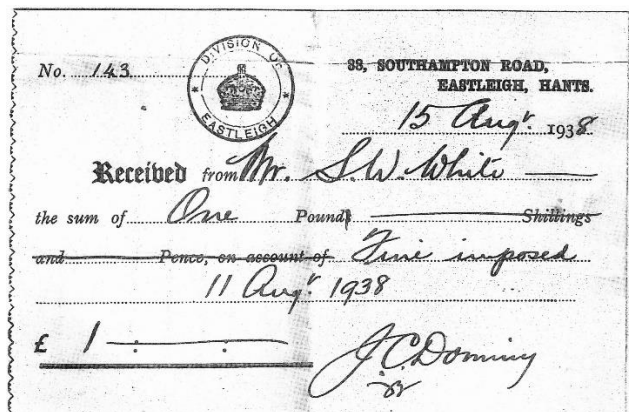 No. 143
DIVISION OF
EASTLEIGH
33, SOUTHAMPTON ROAD,
EASTLEIGH, HANTS.
15 Augt. 1938
Received from Mr. S.W. White
the sum of One Pounds Shillings
and Pence, on account of Fine imposed
11 Augt. 1938
£ 1 : :
J.C. Dominy